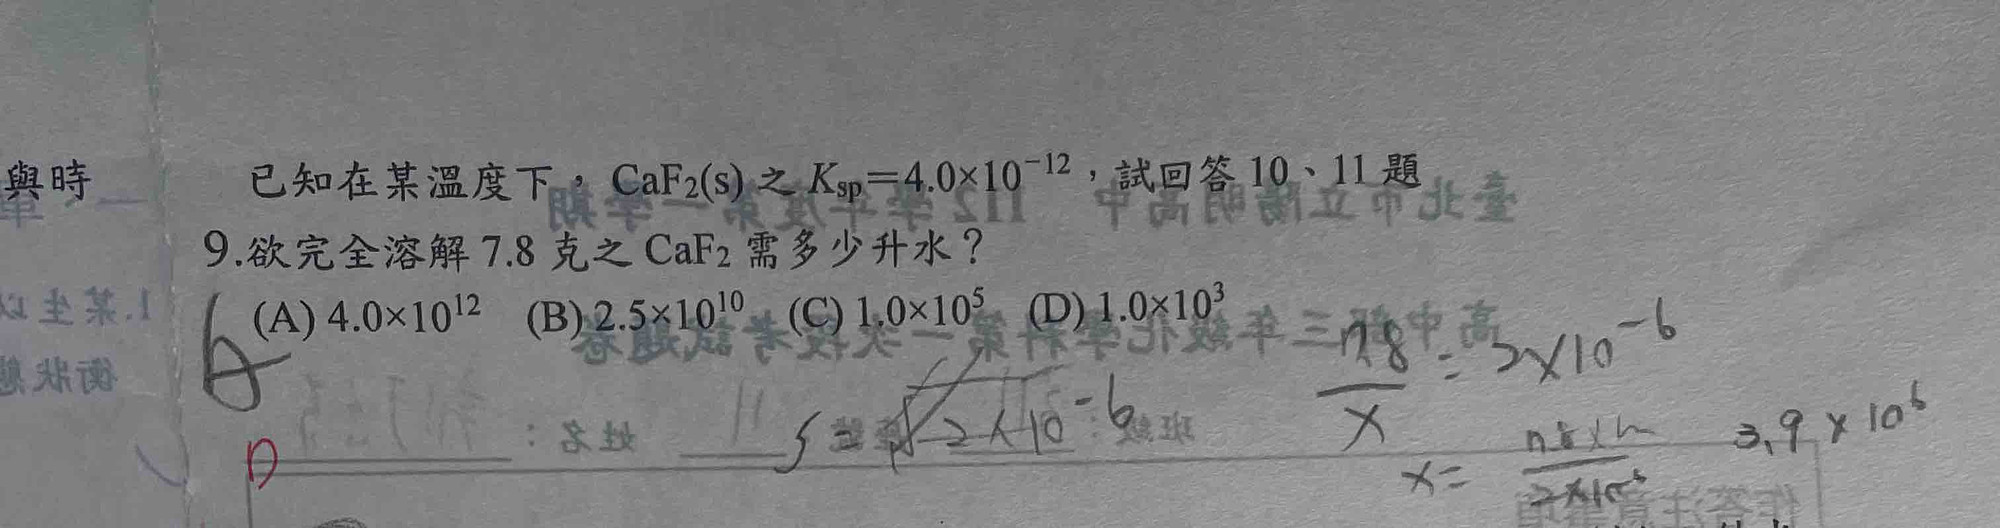 與時
已知在某溫度下，CaF₂(s) 之 Ksp＝4.0×10⁻¹²，試回答 10、11 題
9.欲完全溶解 7.8 克之 CaF₂ 需多少升水？
(A) 4.0×10¹² (B) 2.5×10¹⁰ (C) 1.0×10⁵ (D) 1.0×10³
A
D
S = 2×10⁻⁶
7.8/x = 2×10⁻⁶
x=
3.9×10⁶